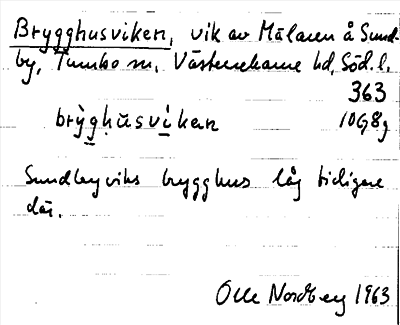 Brygghusviken, vik av Mälaren å Sund-
by, Tumbo sn, Västerrekarne hd, Söd. l.
363
brỳg̣hùsvìkan 10G8g
Sundbyviks brygghus låg tidigare
där.
Olle Nordberg 1963